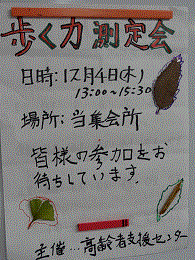 歩く力測定会
日時:12月4日(木)
13:00~15:30
場所:当集会所
皆様の参加をお
待ちしています。
主催…高齢者支援センター